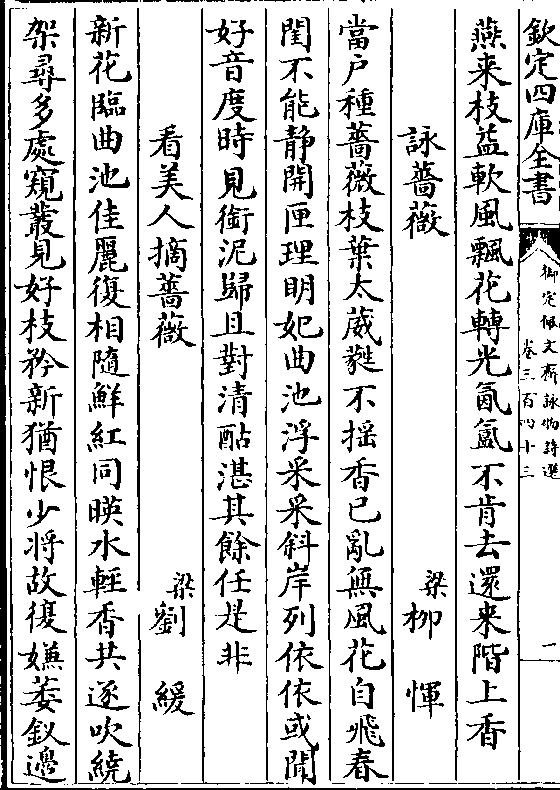 欽定四庫全書
御定佩文齋詠物詩選
卷三百四十三
一
燕來枝益軟風飄花轉光氤氳不肯去還来階上香
詠薔薇
梁栁惲
當户種薔薇枝葉太葳蕤不揺香已亂無風花自飛春
閨不能静開匣理明妃曲池浮采采斜岸列依依或聞
好音度時見銜泥歸且對清酤湛其餘任是非
看美人摘薔薇
梁劉緩
新花臨曲池佳麗復相隨鮮紅同暎水輕香共逐吹繞
架尋多處窺叢見好枝矜新猶恨少将故復嫌萎釵邊